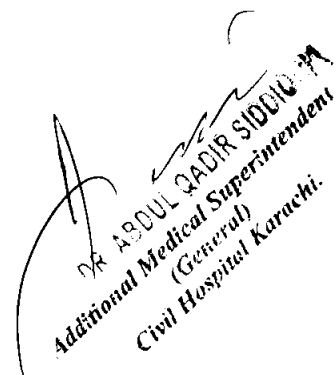 DR ABDUL QADIR SIDDIQUI
Additional Medical Superintendent
(General)
Civil Hospital Karachi.